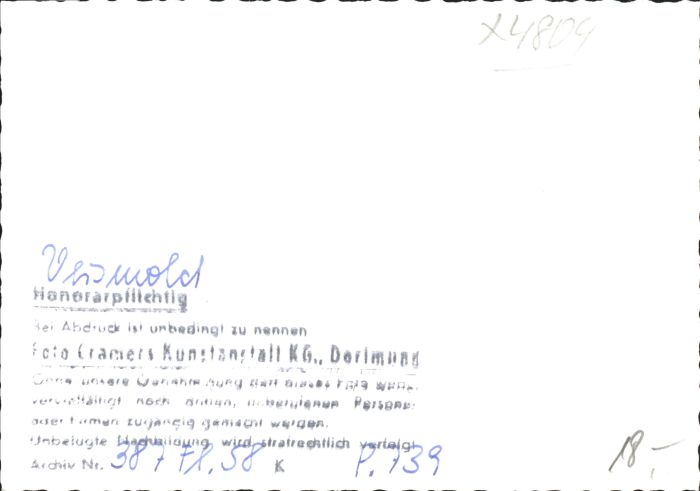 X4809
Versmold
Honorarpflichtig
Bei Abdruck ist unbedingt zu nennen
Foto Cramers Kunstanstalt KG., Dortmund
Ohne unsere Genehmigung darf dieses Foto weder
vervielfältigt noch dritten, unberufenen Personen
oder Firmen zugängig gemacht werden.
Unbefugte Nachbildung wird strafrechtlich verfolgt
Archiv Nr. 387 K P. 739
18,-